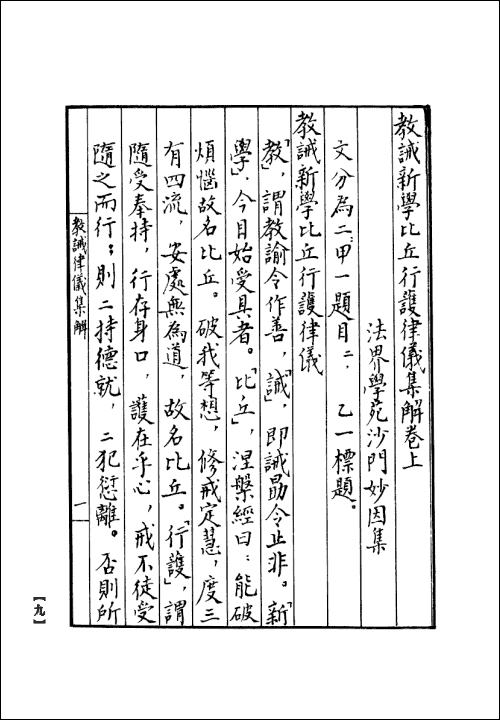 教誡新學比丘行護律儀集解卷上
法界學苑沙門妙因集
文分為二、甲一題目二、 乙一標題。
教誡新學比丘行護律儀
「教」，謂教諭令作善，「誡」，即誡勗令止非。「新
學」，今日始受具者。「比丘」，涅槃經曰：能破
煩惱故名比丘。破我等想，修戒定慧，度三
有四流，安處無為道，故名比丘。「行護」，謂
隨受奉持，行存身口，護在乎心，戒不徒受
隨之而行；則二持德就，二犯愆離。否則所
教誡律儀集解
一
【九】